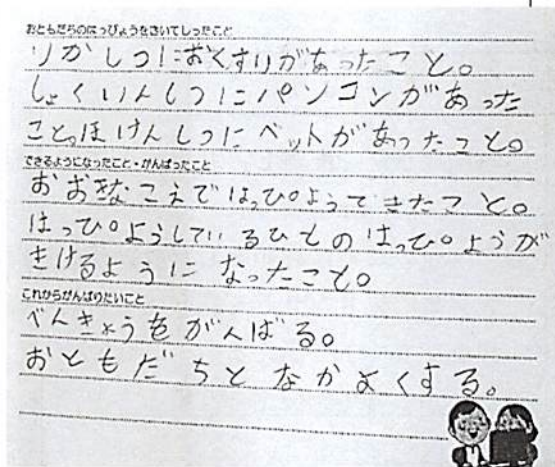 おともだちのはっぴょうをきいてしったこと
りかしつにおくすりがあったこと。
しょくいんしつにパソコンがあった
こと。ほけんしつにベットがあったこと。
できるようになったこと・がんばったこと
おおきなこえではっぴょうできたこと。
はっぴょうしているひとのはっぴょうが
きけるようになったこと。
これからがんばりたいこと
べんきょうをがんばる。
おともだちとなかよくする。